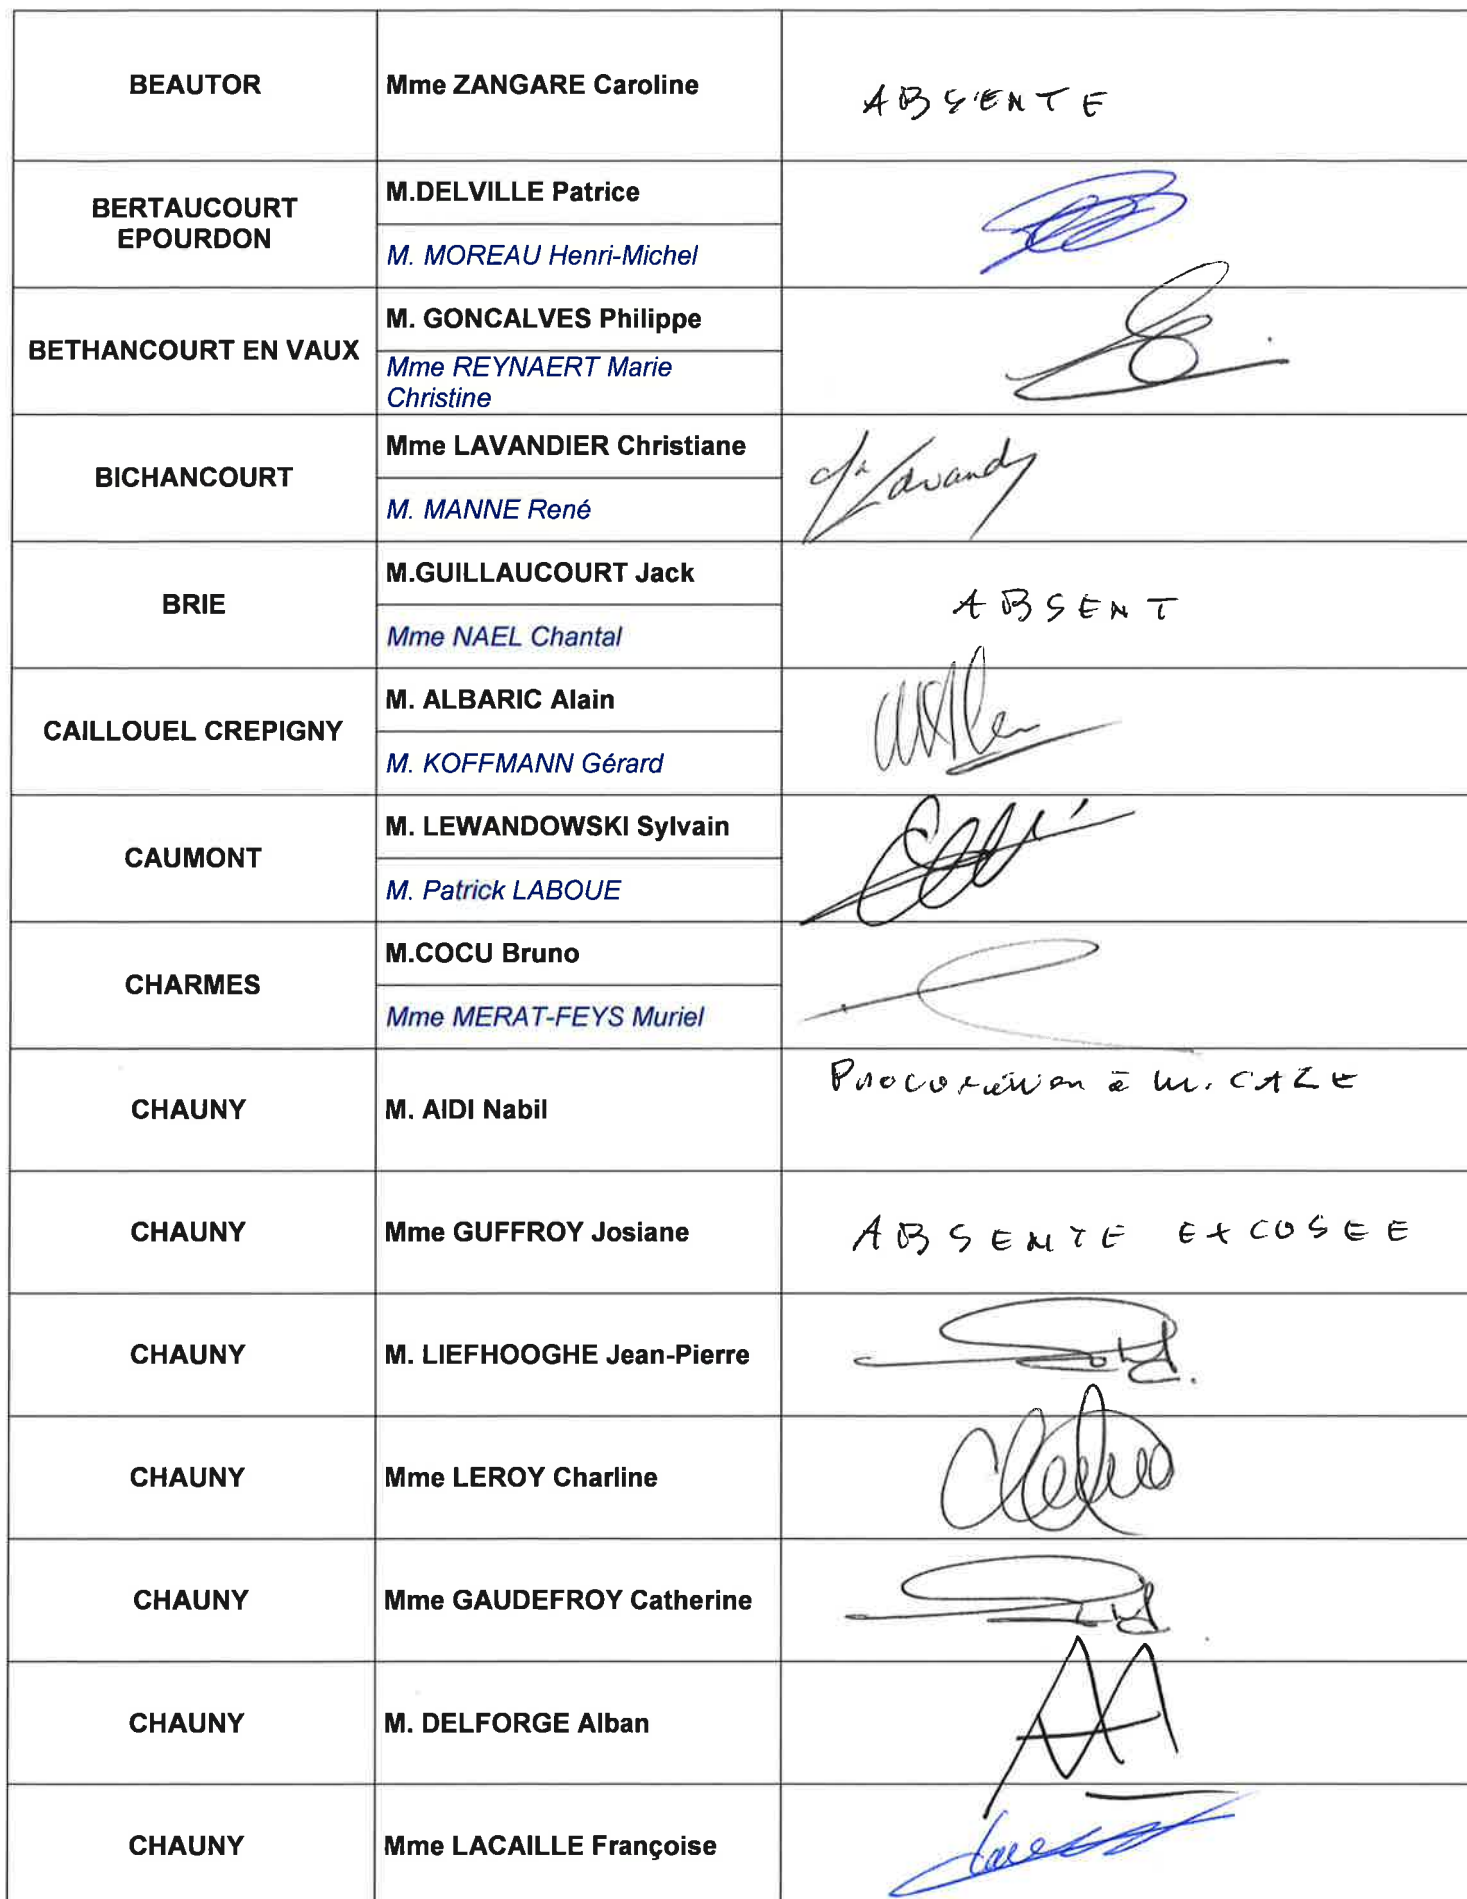 BEAUTOR
Mme ZANGARE Caroline
ABSENTE
BERTAUCOURT
EPOURDON
M.DELVILLE Patrice
M. MOREAU Henri-Michel
BETHANCOURT EN VAUX
M. GONCALVES Philippe
Mme REYNAERT Marie
Christine
BICHANCOURT
Mme LAVANDIER Christiane
M. MANNE René
BRIE
M.GUILLAUCOURT Jack
Mme NAEL Chantal
ABSENT
CAILLOUEL CREPIGNY
M. ALBARIC Alain
M. KOFFMANN Gérard
CAUMONT
M. LEWANDOWSKI Sylvain
M. Patrick LABOUE
CHARMES
M.COCU Bruno
Mme MERAT-FEYS Muriel
CHAUNY
M. AIDI Nabil
Procuration à M. CAZE
CHAUNY
Mme GUFFROY Josiane
ABSENTE EXCUSEE
CHAUNY
M. LIEFHOOGHE Jean-Pierre
CHAUNY
Mme LEROY Charline
CHAUNY
Mme GAUDEFROY Catherine
CHAUNY
M. DELFORGE Alban
CHAUNY
Mme LACAILLE Françoise